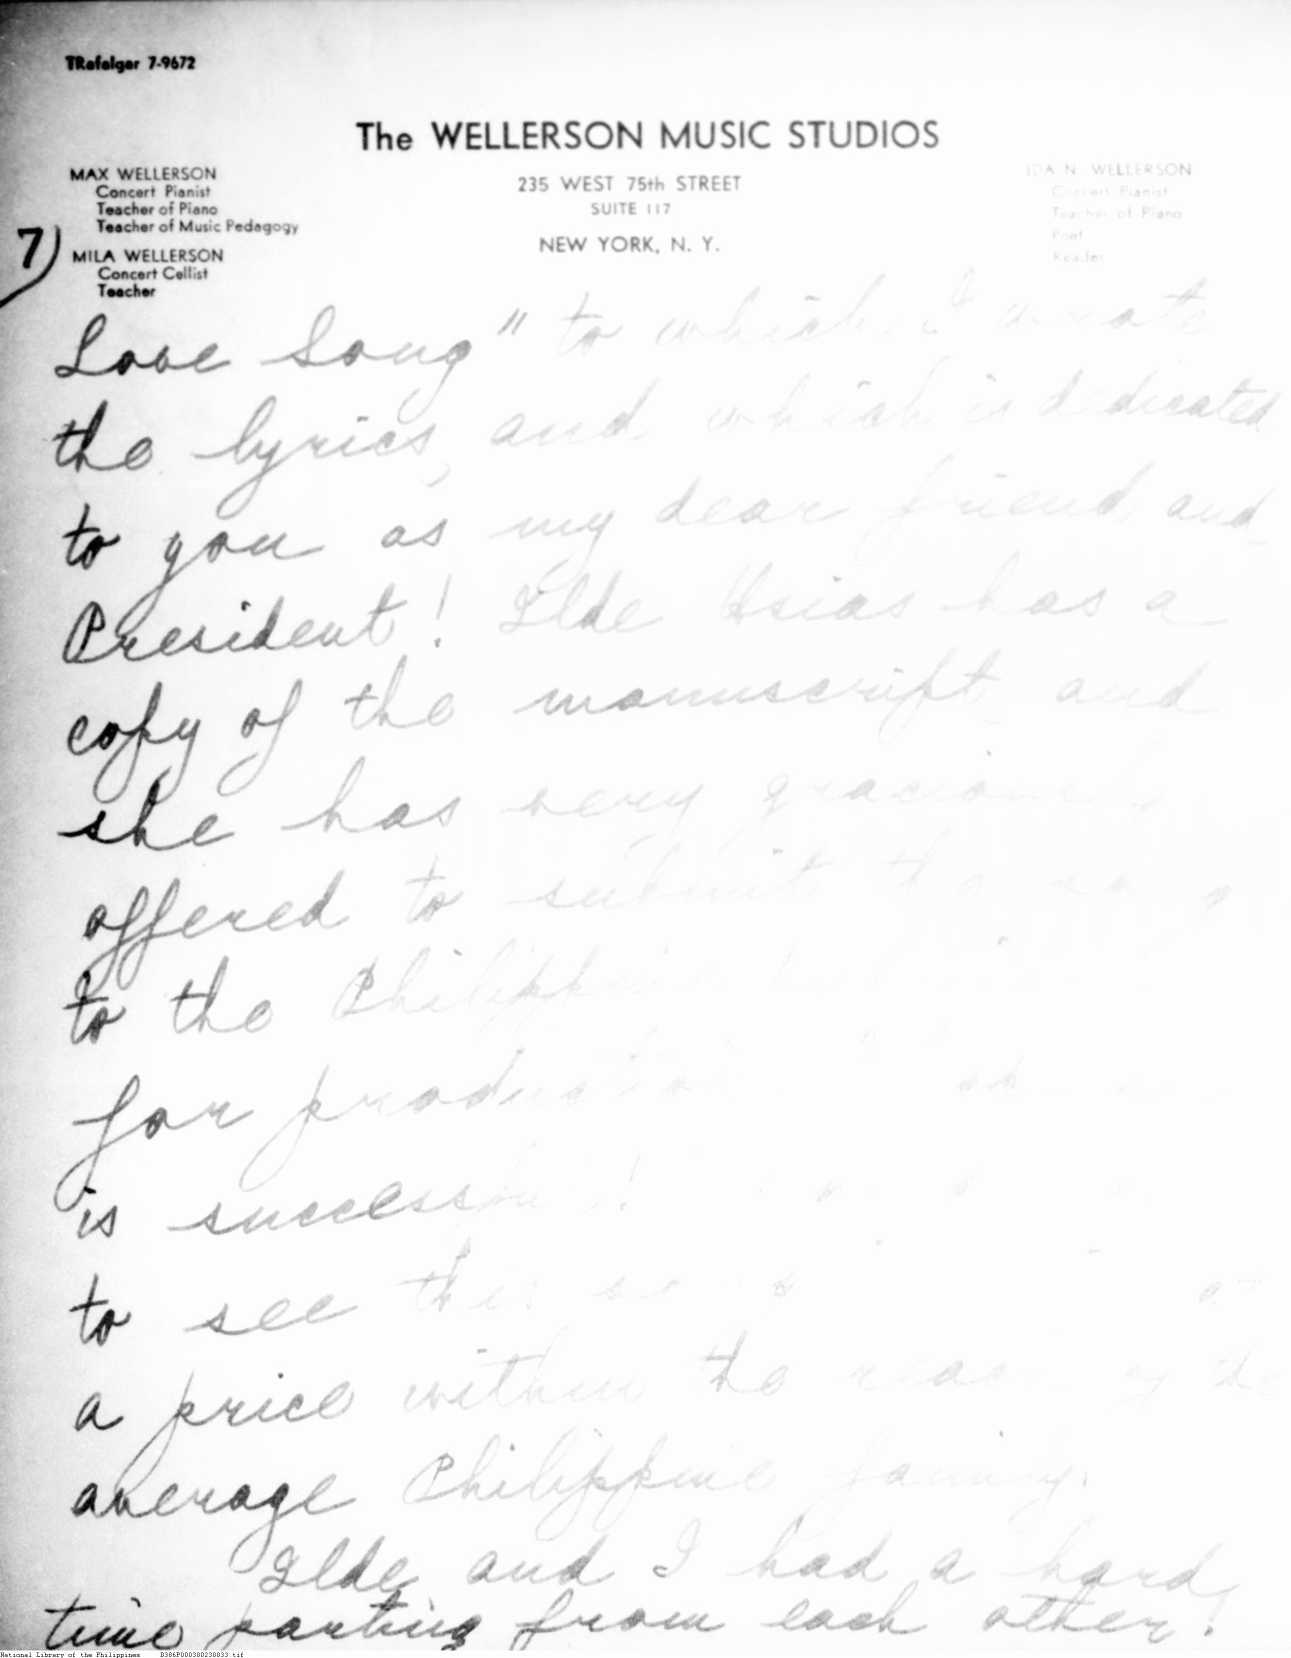 TRafalgar 7-9672
The WELLERSON MUSIC STUDIOS
MAX WELLERSON
Concert Pianist
Teacher of Piano
Teacher of Music Pedagogy
MILA WELLERSON
Concert Cellist
Teacher
235 WEST 75th STREET
SUITE 117
NEW YORK, N. Y.
IDA N. WELLERSON
Concert Pianist
Teacher of Piano
Poet
Reader
7)
Love Song" to which I wrote
the lyrics, and which is dedicated
to you as my dear friend and
President! Ilde Hsias has a
copy of the manuscript and
she has very graciously
offered to submit the song
to the Philippine
for production
is successful!
to see this song at
a price within the reach of the
average Philippine family.
Ilde and I had a hard
time parting from each other!
National Library of the Philippines B386P000300230033.tif